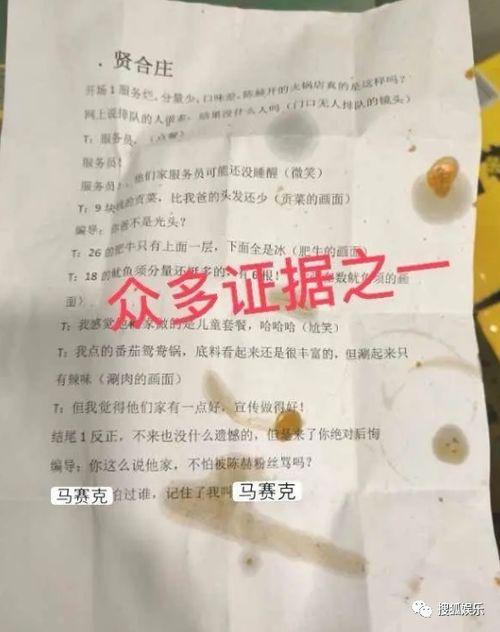 . 贤合庄
开场 1 服务烂,分量少,口味差,陈赫开的火锅店真的是这样吗?
网上说排队的人很多,结果没什么人吗(门口无人排队的镜头)
T:服务员,(点餐)
服务员!
服务员!,他们家服务员可能还没睡醒(微笑)
T:9 块钱的贡菜,比我爸的头发还少(贡菜的画面)
编导:你爸不是光头?
T:26 的肥牛只有上面一层,下面全是冰(肥牛的画面)
T:18 的鱿鱼须分量还挺多的,有 6 根!数鱿鱼须的画
面)
众多证据之一
T:我感觉他们家做的是儿童套餐,哈哈哈(尬笑)
T:我点的番茄鸳鸯锅,底料看起来还是很丰富的,但涮起来只
有辣味(涮肉的画面)
T:但我觉得他们家有一点好,宣传做得好!
结尾 1 反正,不来也没什么遗憾的,但是来了你绝对后悔
编导:你这么说他家,不怕被陈赫粉丝骂吗?
马赛克怕过谁,记住了我叫马赛克
搜狐娱乐